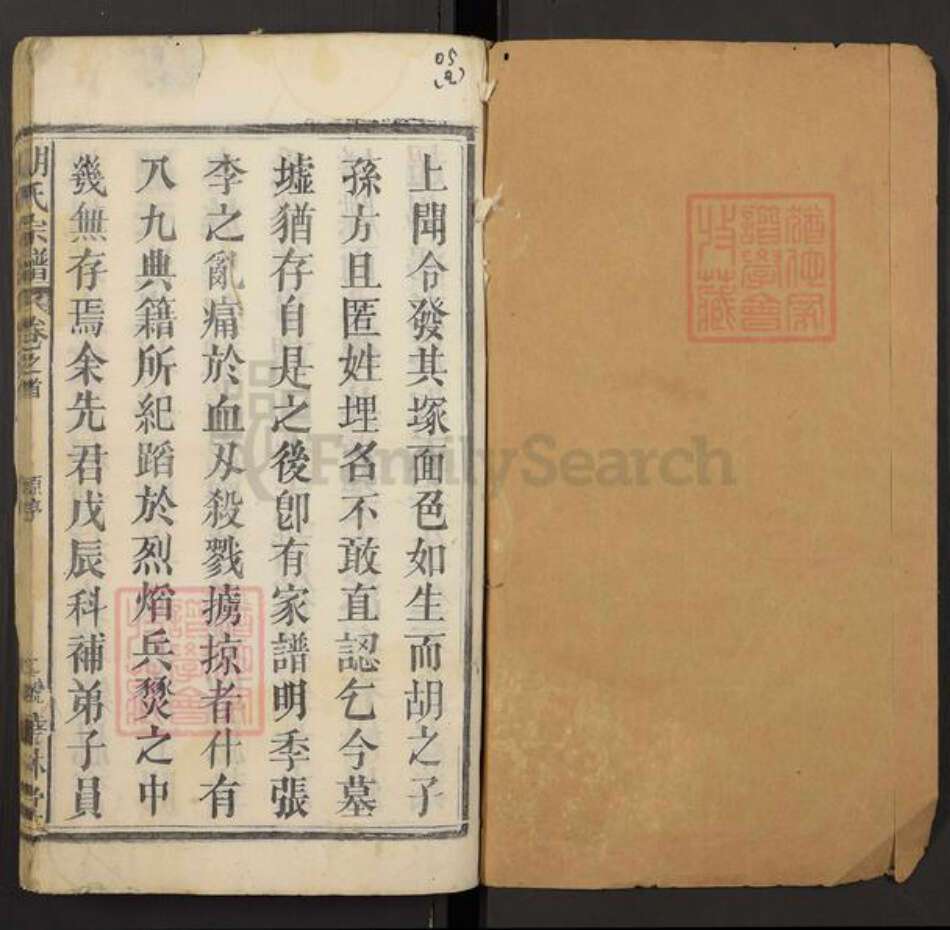 05
(a)
上聞令發其塚面色如生而胡之子
孫方且匿姓埋名不敢直認乞今墓
墟猶存自是之後卽有家譜明季張
李之亂痛於血刄殺戮擄掠者什有
八九典籍所紀蹈於烈焰兵燹之中
幾無存焉余先君戊辰科補弟子員
胡氏宗譜 卷之首
FamilySearch
譜學會
收藏